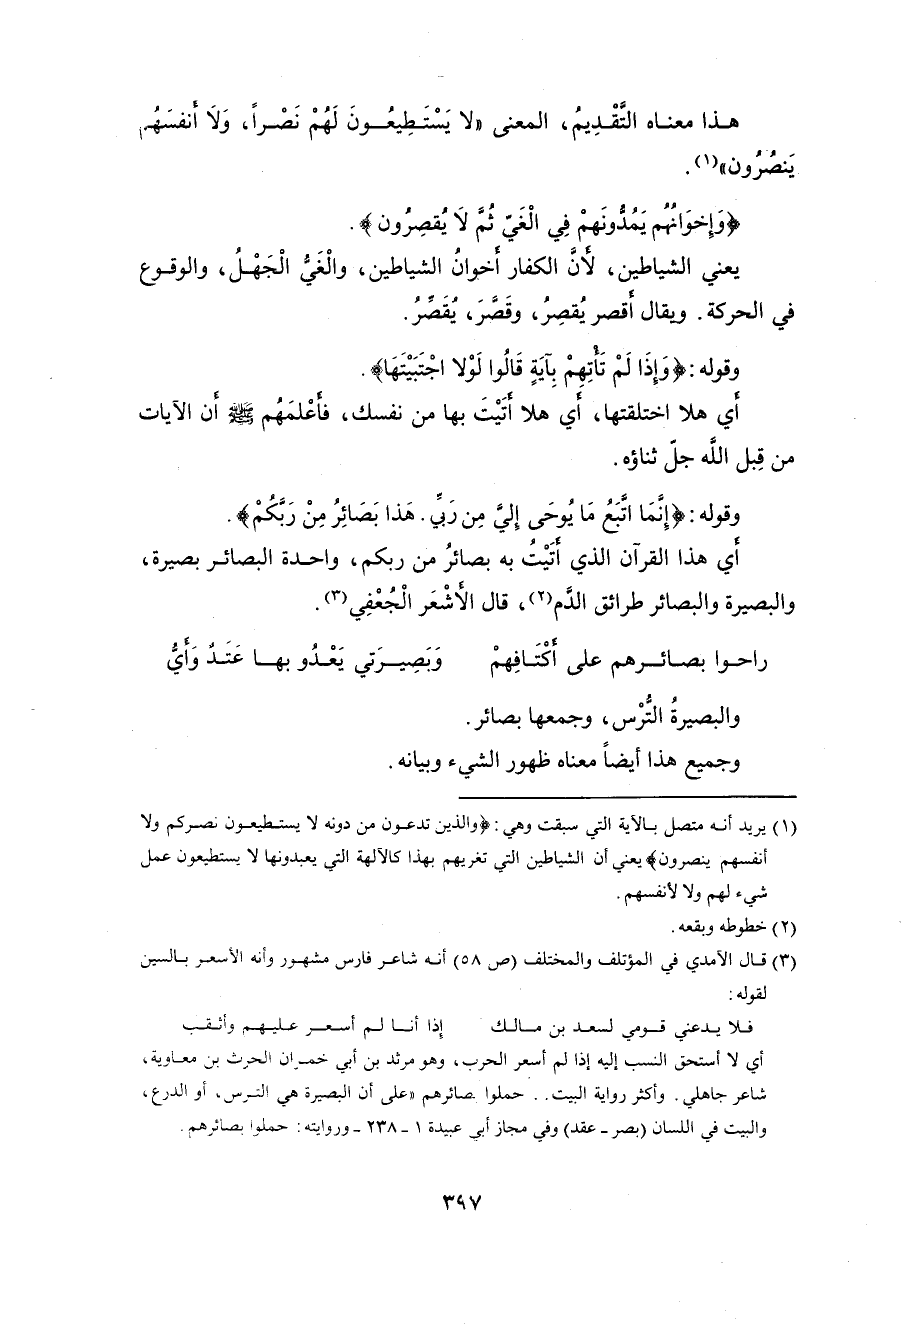 هـذا معنـاه التَّقْـدِيمُ، المعنى «لا يَسْتَـطِيعُـونَ لَهُمْ نَصْـراً، وَلَا أَنفسَهُم
يَنصُرُون»(١).
﴿وَإِخوَانُهُم يَمُدُّونَهمْ فِي الْغَيّ ثُمَّ لَا يُقصِرُون﴾.
يعني الشياطين، لأَنَّ الكفار أَخوانُ الشياطين، والْغَيُّ الْجَهْـلُ، والوقـوع
في الحركة. ويقال أَقصر يُقصِرُ، وقَصَّرَ، يُقَصِّرُ.
وقوله: ﴿وَإِذَا لَمْ تَأْتِهِمْ بِآيَةٍ قَالُوا لَوْلا اجْتَبَيْتَهَا﴾.
أَي هلا اختلقتها، أَي هلا أَتَيْتَ بها من نفسك، فأَعْلمَهُم ﷺ أَن الآيات
من قِبل اللَّه جلّ ثناؤه.
وقوله: ﴿إِنَّمَا اتَّبَعُ مَا يُوحَى إِليَّ مِن رَبِّي. هَذا بَصَائِرُ مِنْ رَبَّكُمْ﴾.
أَي هذا القرآن الذي أَتَيْتُ به بصائرُ من ربكم، واحـدة البصائـر بصيرة،
والبصيرة والبصائر طرائق الدَّم(٢)، قال الأَشْعَر الْجُعْفِي(٣).
راحـوا بصـائـرهم على أَكْتَـافِهمْ وَبَصِيـرَتي يَعْـدُو بهـا عَتَـدٌ وَأَيُّ
والبصيرةُ التُّرْس، وجمعها بصائر.
وجميع هذا أَيضاً معناه ظهور الشيء وبيانه.
(١) يريد أنـه متصل بـالآية التي سبقت وهي: ﴿والذين تدعـون من دونه لا يستـطيعـون نصـركم ولا
أنفسهم ينصرون﴾ يعني أن الشياطين التي تغريهم بهذا كالآلهة التي يعبدونها لا يستطيعون عمل
شيء لهم ولا لأنفسهم.
(٢) خطوطه وبقعه.
(٣) قـال الآمدي في المؤتلف والمختلف (ص ٥٨) أنـه شاعـر فارس مشهـور وأنه الأسعـر بـالسين
لقوله:
فـلا يـدعني قـومي لسعـد بن مـالـك إذا أنـا لـم أسعـر عليـهم وأثـقب
أي لا أستحق النسب إليه إذا لم أسعر الحرب، وهو مرثد بن أبي حمـران الحرث بن معـاوية،
شاعر جاهلي. وأكثر رواية البيت.. حملوا بصائرهم «على أن البصيرة هي التـرس، أو الدرع،
والبيت في اللسان (بصر ـ عقد) وفي مجاز أبي عبيدة ١ ـ ٢٣٨ ـ وروايته: حملوا بصائرهم.
٣٩٧